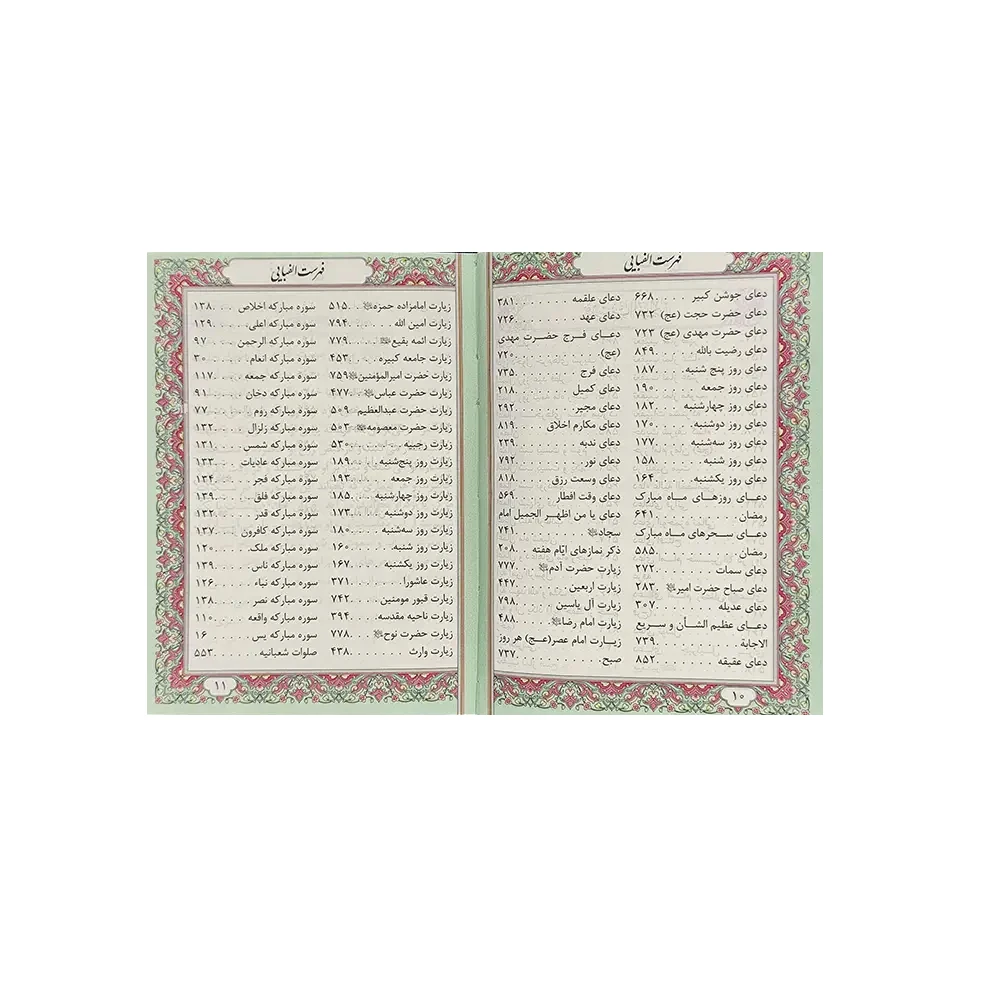 فهرست الفبایی
دعای جوشن کبیر .....۶۶۸
دعای حضرت حجت (عج) ۷۳۲
دعای حضرت مهدی (عج) ۷۲۳
دعای رضیت بالله .....۸۴۹
دعای روز پنج شنبه .....۱۸۷
دعای روز جمعه .....۱۹۰
دعای روز چهارشنبه .....۱۸۲
دعای روز دوشنبه.....۱۷۰
دعای روز سه‌شنبه .....۱۷۷
دعای روز شنبه.....۱۵۸
دعای روز یکشنبه.....۱۶۴
دعـای روزهـای مـاه مبارک
رمضان .....۶۴۱
دعـای سـحرهای مـاه مبـارک
رمضان .....۵۸۵
دعای سمات .....۲۷۲
دعای صباح حضرت امیر ...۲۸۳
دعای عدیله .....۳۰۷
دعـای عظیم الشـأن و سـریع
الاجابة .....۷۳۹
دعای عقیقه .....۸۵۲
دعای علقمه .....۳۸۱
دعای عهد .....۷۲۶
دعـای فـرج حضـرت مهدی
(عج).....۷۲۰
دعای فرج .....۷۳۵
دعای کمیل .....۲۱۸
دعای مجیر.....۲۹۲
دعای مکارم اخلاق .....۸۱۹
دعای ندبه .....۲۳۹
دعای نور.....۷۹۲
دعای وسعت رزق.....۸۱۸
دعای وقت افطار .....۵۶۹
دعای یا من اظهـر الجمیل امام
سجاد.....۷۴۱
ذکر نمازهای ایّام هفته ..۲۰۸
زیارت حضرت آدم.....۷۷۷
زیارت اربعین.....۴۴۷
زیارت آل یاسین .....۷۹۸
زیارت امام رضا.....۴۸۸
زیـارت امام عصر(عـج) هر روز
صبح.....۷۳۷
۱۰
فهرست الفبایی
زیارت امامزاده حمزه ..۵۱۵
زیارت امین الله .....۷۹۴
زیارت ائمه بقیع.....۷۷۹
زیارت جامعه کبیره .....۴۵۳
زیارت حضرت امیرالمؤمنین ۷۵۹
زیارت حضرت عباس....۴۷۷
زیارت حضرت عبدالعظیم ..۵۰۹
زیارت حضرت معصومه ..۵۰۳
زیارت رجبیه .....۵۳۰
زیارت روز پنج‌شنبه .....۱۸۹
زیارت روز جمعه .....۱۹۳
زیارت روز چهارشنبه .....۱۸۵
زیارت روز دوشنبه.....۱۷۳
زیارت روز سه‌شنبه .....۱۸۰
زیارت روز شنبه.....۱۶۰
زیارت روز یکشنبه.....۱۶۷
زیارت عاشورا.....۳۷۱
زیارت قبور مومنین .....۷۴۲
زیارت ناحیه مقدسه.....۳۹۴
زیارت حضرت نوح .....۷۷۸
زیارت وارث .....۴۳۸
سوره مبارکه اخلاص .....۱۳۸
سوره مبارکه اعلی.....۱۲۹
سوره مبارکه الرحمن .....۹۷
سوره مبارکه انعام .....۳۰
سوره مبارکه جمعه .....۱۱۷
سوره مبارکه دخان .....۹۱
سوره مبارکه روم .....۷۷
سوره مبارکه زلزال .....۱۳۲
سوره مبارکه شمس .....۱۳۱
سوره مبارکه عادیات .....۱۳۳
سوره مبارکه فجر .....۱۳۴
سوره مبارکه فلق .....۱۳۹
سوره مبارکه قدر .....۱۳۲
سوره مبارکه کافرون .....۱۳۷
سوره مبارکه ملک.....۱۲۰
سوره مبارکه ناس .....۱۳۹
سوره مبارکه نباء .....۱۲۶
سوره مبارکه نصر .....۱۳۸
سوره مبارکه واقعه .....۱۱۰
سوره مبارکه یس .....۱۶
صلوات شعبانیه .....۵۵۳
۱۱